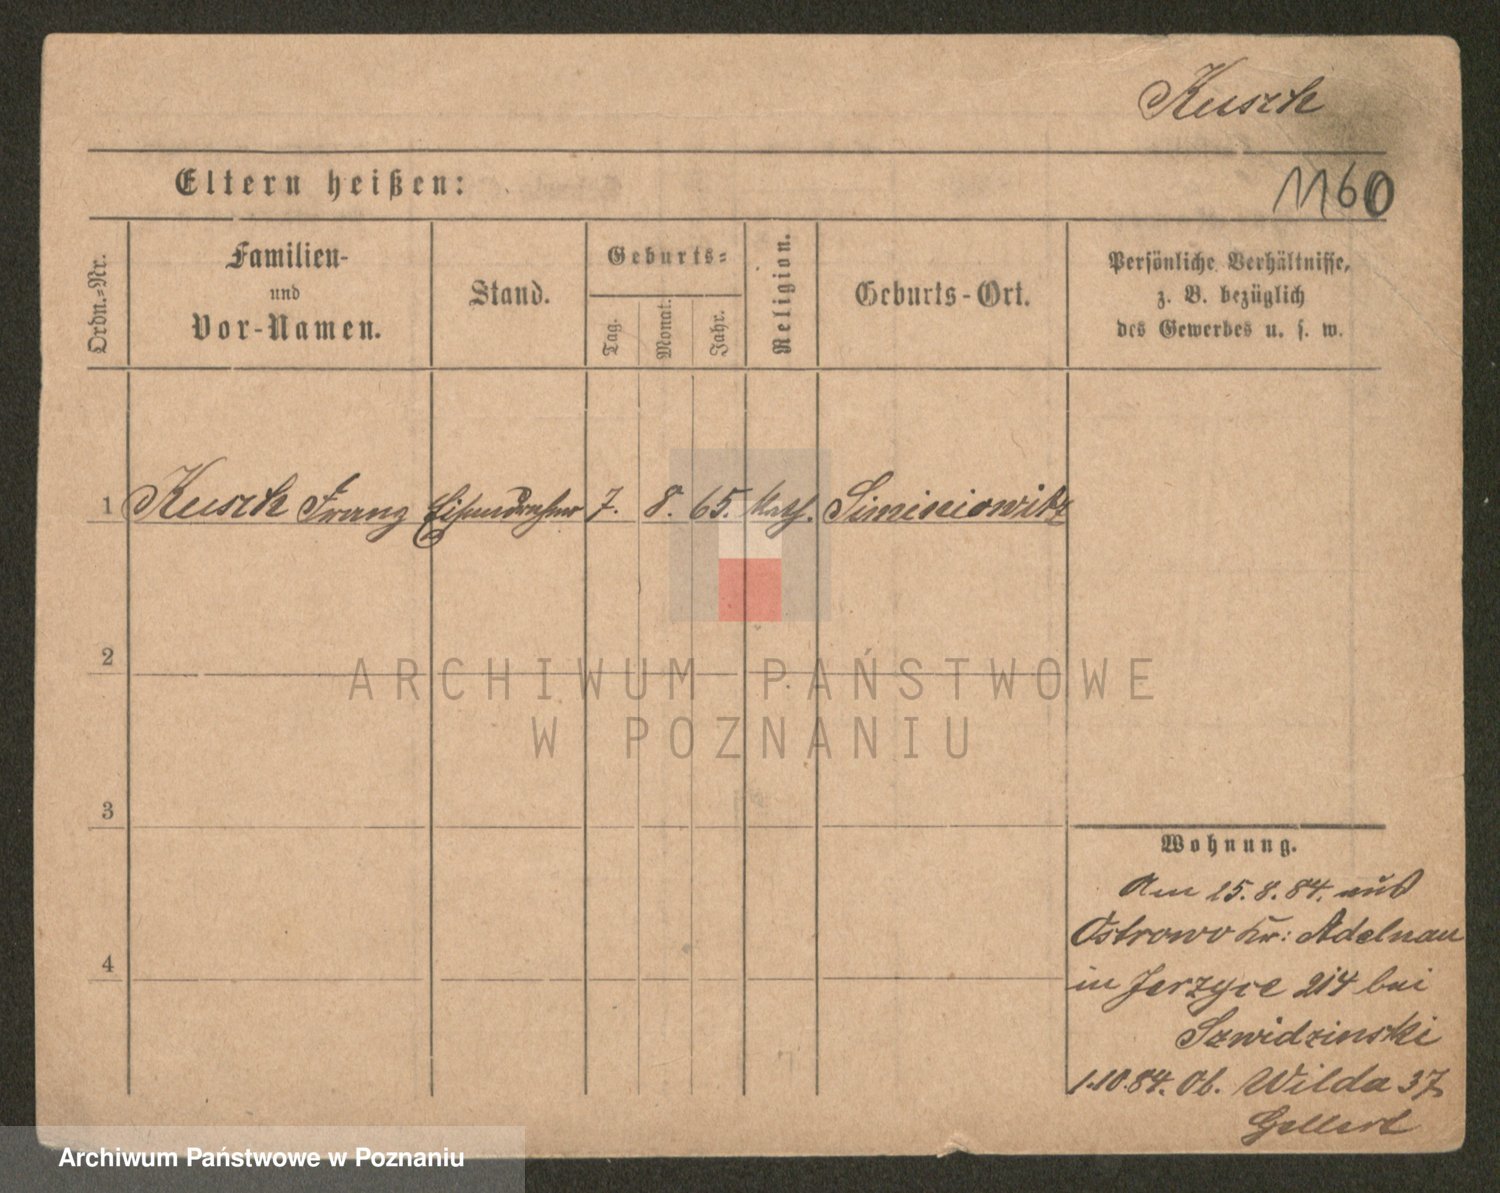 Kusch
Eltern heißen:
1160
Ordn.=Nr.
Familien-
und
Vor-Namen.
Stand.
Geburts=
Tag.
Monat.
Jahr.
Religion.
Geburts-Ort.
Persönliche Verhältnisse,
z. B. bezüglich
des Gewerbes u. s. w.
1 Kusch Franz Eisendreher 7. 8. 65. Kath.
2
3
4
Wohnung.
Am 25.8.84. aus
Ostrowo Kr: Adelnau
in Jerzyce 214 bei
Szwidzinski
1.10.84. Ob. Wilda 37
Gellert
ARCHIWUM PAŃSTWOWE
W POZNANIU
Archiwum Państwowe w Poznaniu